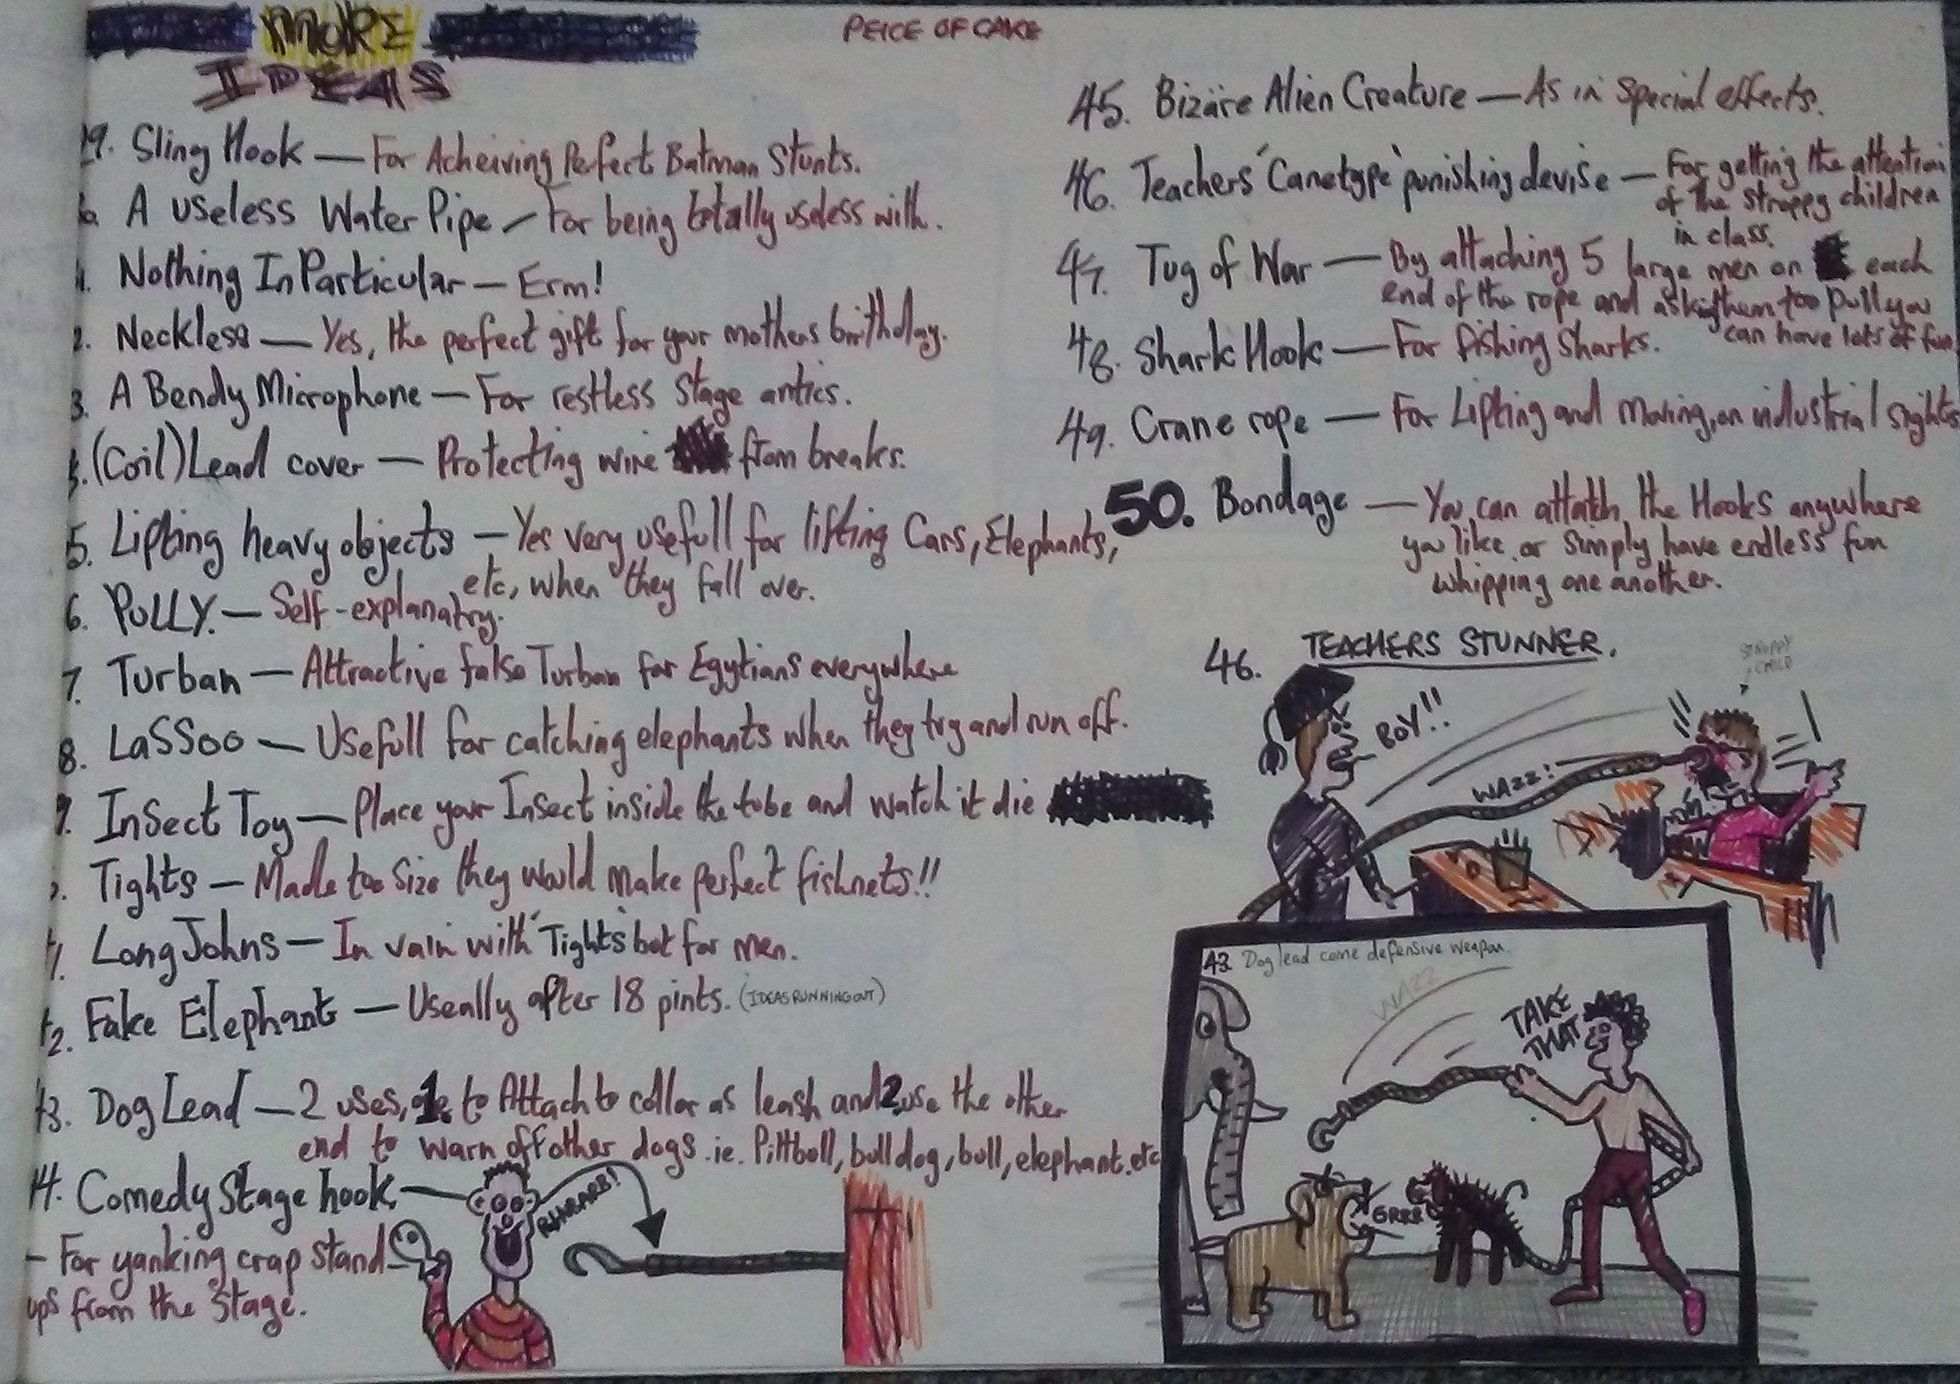 MORE
IDEAS
PEICE OF CAKE
29. Sling Hook — For Acheiving Perfect Batman Stunts.
0. A useless Water Pipe — For being totally useless with.
1. Nothing In Particular — Erm!
2. Neckless — Yes, the perfect gift for your mothers birthday.
3. A Bendy Microphone — For restless stage antics.
(Coil) Lead cover — Protecting wire from breaks.
5. Lifting heavy objects — Yes very usefull for lifting Cars, Elephants,
etc, when they fall over.
6. PULLY. — Self-explanatry.
7. Turban — Attractive false Turban for Egytians everywhere
8. LaSSoo — Usefull for catching elephants when they try and run off.
9. Insect Toy — Place your Insect inside the tube and watch it die
0. Tights — Made too size they would make perfect fishnets!!
41. Long Johns — In vain with 'Tights' but for men.
42. Fake Elephant — Useally after 18 pints. (IDEAS RUNNING OUT)
43. Dog Lead — 2 uses, 1. to Attach to collar as leash and 2 use the other
end to warn off other dogs .ie. Pittboll, bulldog, bull, elephant. etc
44. Comedy Stage hook.
— For yanking crap stand
ups from the stage.
RHUBARB!
45. Bizare Alien Creature — As in special effects.
46. Teachers 'Canetype' punishing devise — For getting the attention
of the stroppy children
in class.
47. Tug of War — By attaching 5 large men on each
end of the rope and asking them too pull you
can have lots of fun
48. Shark Hook — For fishing Sharks.
49. Crane rope — For Lifting and moving, on industrial sights
50. Bondage — You can attatch the Hooks anywhere
you like. or simply have endless fun
whipping one another.
46. TEACHERS STUNNER.
STROPPY
CHILD
BOY!!
WAZZ!
43. Dog lead come defensive weapon.
WAZZ
TAKE
THAT
GRRR